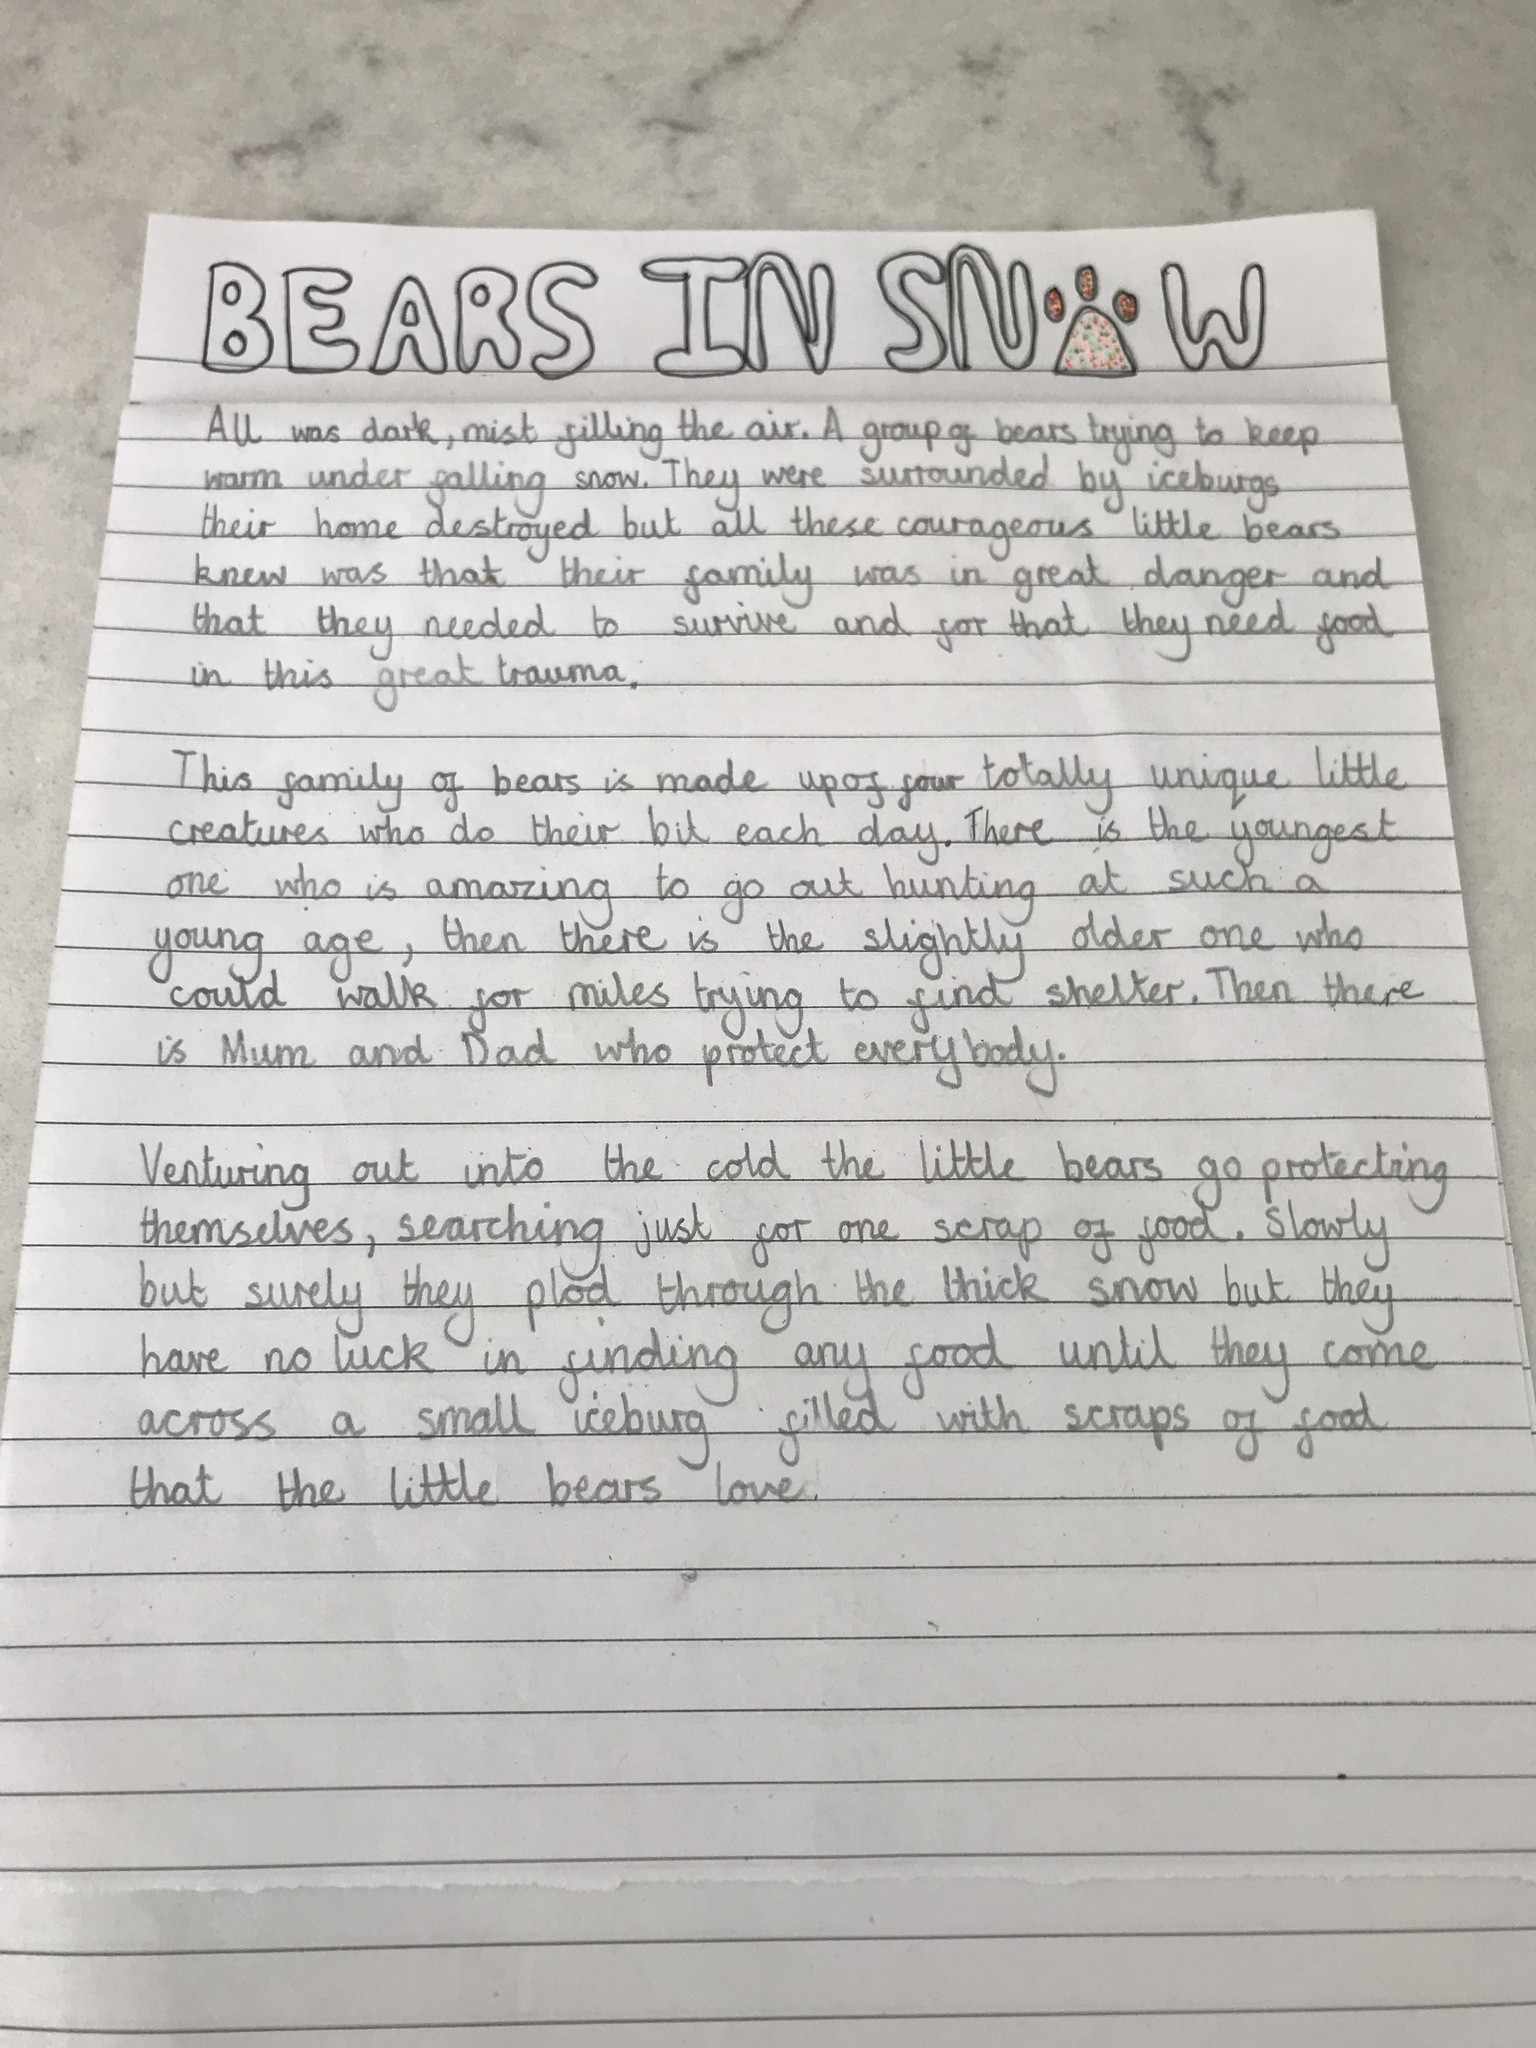 BEARS IN SNOW
All was dark, mist filling the air. A group of bears trying to keep
warm under falling snow. They were surrounded by iceburgs
their home destroyed but all these courageous little bears
knew was that their family was in great danger and
that they needed to survive and for that they need food
in this great trauma.
This family of bears is made up of four totally unique little
creatures who do their bit each day. There is the youngest
one who is amazing to go out hunting at such a
young age, then there is the slightly older one who
could walk for miles trying to find shelter. Then there
is Mum and Dad who protect everybody.
Venturing out into the cold the little bears go protecting
themselves, searching just for one scrap of food. Slowly
but surely they plod through the thick snow but they
have no luck in finding any food until they come
across a small iceburg filled with scraps of food
that the little bears love.